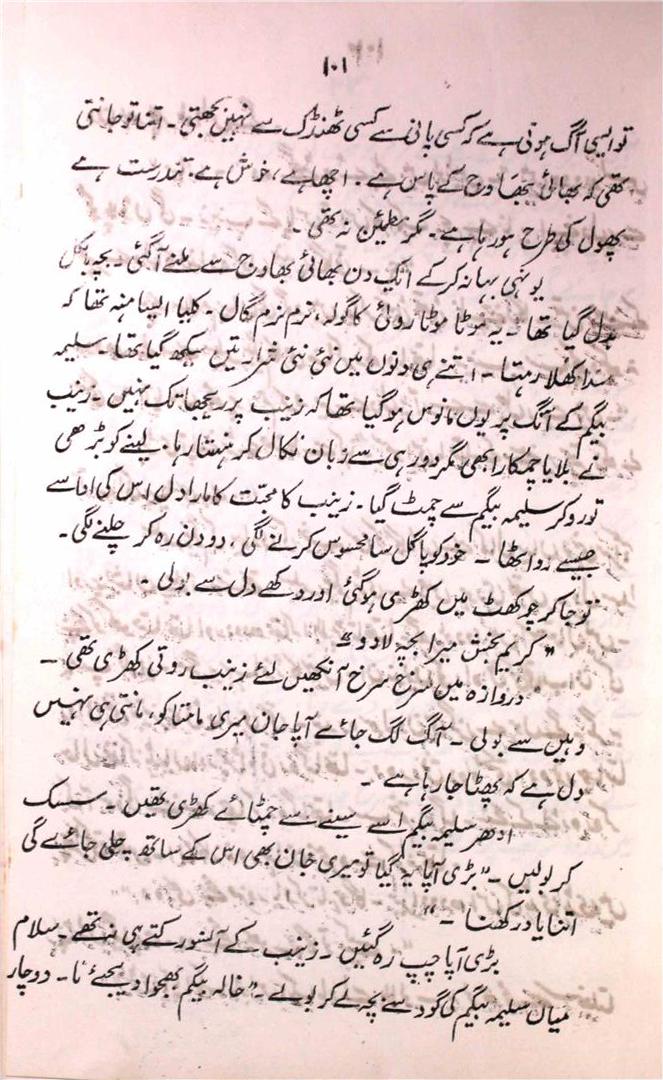 ۱۰۱
تو ایسی آگ ہوتی ہے کہ کسی پانی سے کسی ٹھنڈک سے نہیں بجھتی ۔ اتنا تو جانتی
تھی کہ بھائی بھاوج کے پاس ہے ۔ اچھا ہے ، خوش ہے ، تندرست ہے
پھول کی طرح ہو رہا ہے ۔ مگر مطمئین نہ تھی ۔
یونہی بہانہ کر کے ایک دن بھائی بھاوج سے ملنے آ گئی ۔ بچہ بالکل
بدل گیا تھا ۔ یہ موٹا موٹا روئی کا گولہ ، نرم نرم گال ۔ کلیا ایسا منہ تھا کہ
سدا کھلا رہتا ۔ اتنے ہی دنوں میں نئی نئی شرارتیں سیکھ گیا تھا ۔ سلیمہ
بیگم کے انگ پر یوں مانوس ہو گیا تھا کہ زینب پر ریجھا تک نہیں ۔ زینب
نے بلایا چمکارا بھی مگر دور ہی سے زبان نکال کر ہنستا رہا ۔ لینے کو بڑھی
تو رو کر سلیمہ بیگم سے چمٹ گیا ۔ زینب کا محبت کا مارا دل اس کی ادا سے
جیسے رو اٹھا ۔ خود کو پاگل سا محسوس کرنے لگی ، دو دن رہ کر چلنے لگی ۔
تو جا کر چوکھٹ میں کھڑی ہو گئی اور دکھے دل سے بولی ۔
” کریم بخش میرا بچہ لا دو “
دروازہ میں سرخ سرخ آنکھیں لئے زینب روتی کھڑی تھی ۔
وہیں سے بولی ۔ ”آگ لگ جائے آپا جان میری مامتا کو ، مانتی ہی نہیں
دل ہے کہ پھٹا جا رہا ہے ۔
ادھر سلیمہ بیگم اسے سینے سے چمٹائے کھڑی تھیں ۔ سسک
کر بولیں ۔ ”بڑی آپا یہ گیا تو میری جان بھی اس کے ساتھ چلی جائے گی
اتنا یاد رکھنا ۔“
بڑی آپا چپ رہ گئیں ۔ زینب کے آنسو رکتے ہی نہ تھے ۔ سلام
میاں سلیمہ بیگم کی گود سے بچہ لے کر بولے ۔ ”خالہ بیگم بھجوا دیجئے نا ۔ دو چار